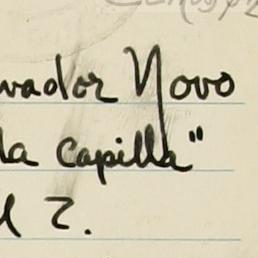 vador Novo
la capilla"
l 2.